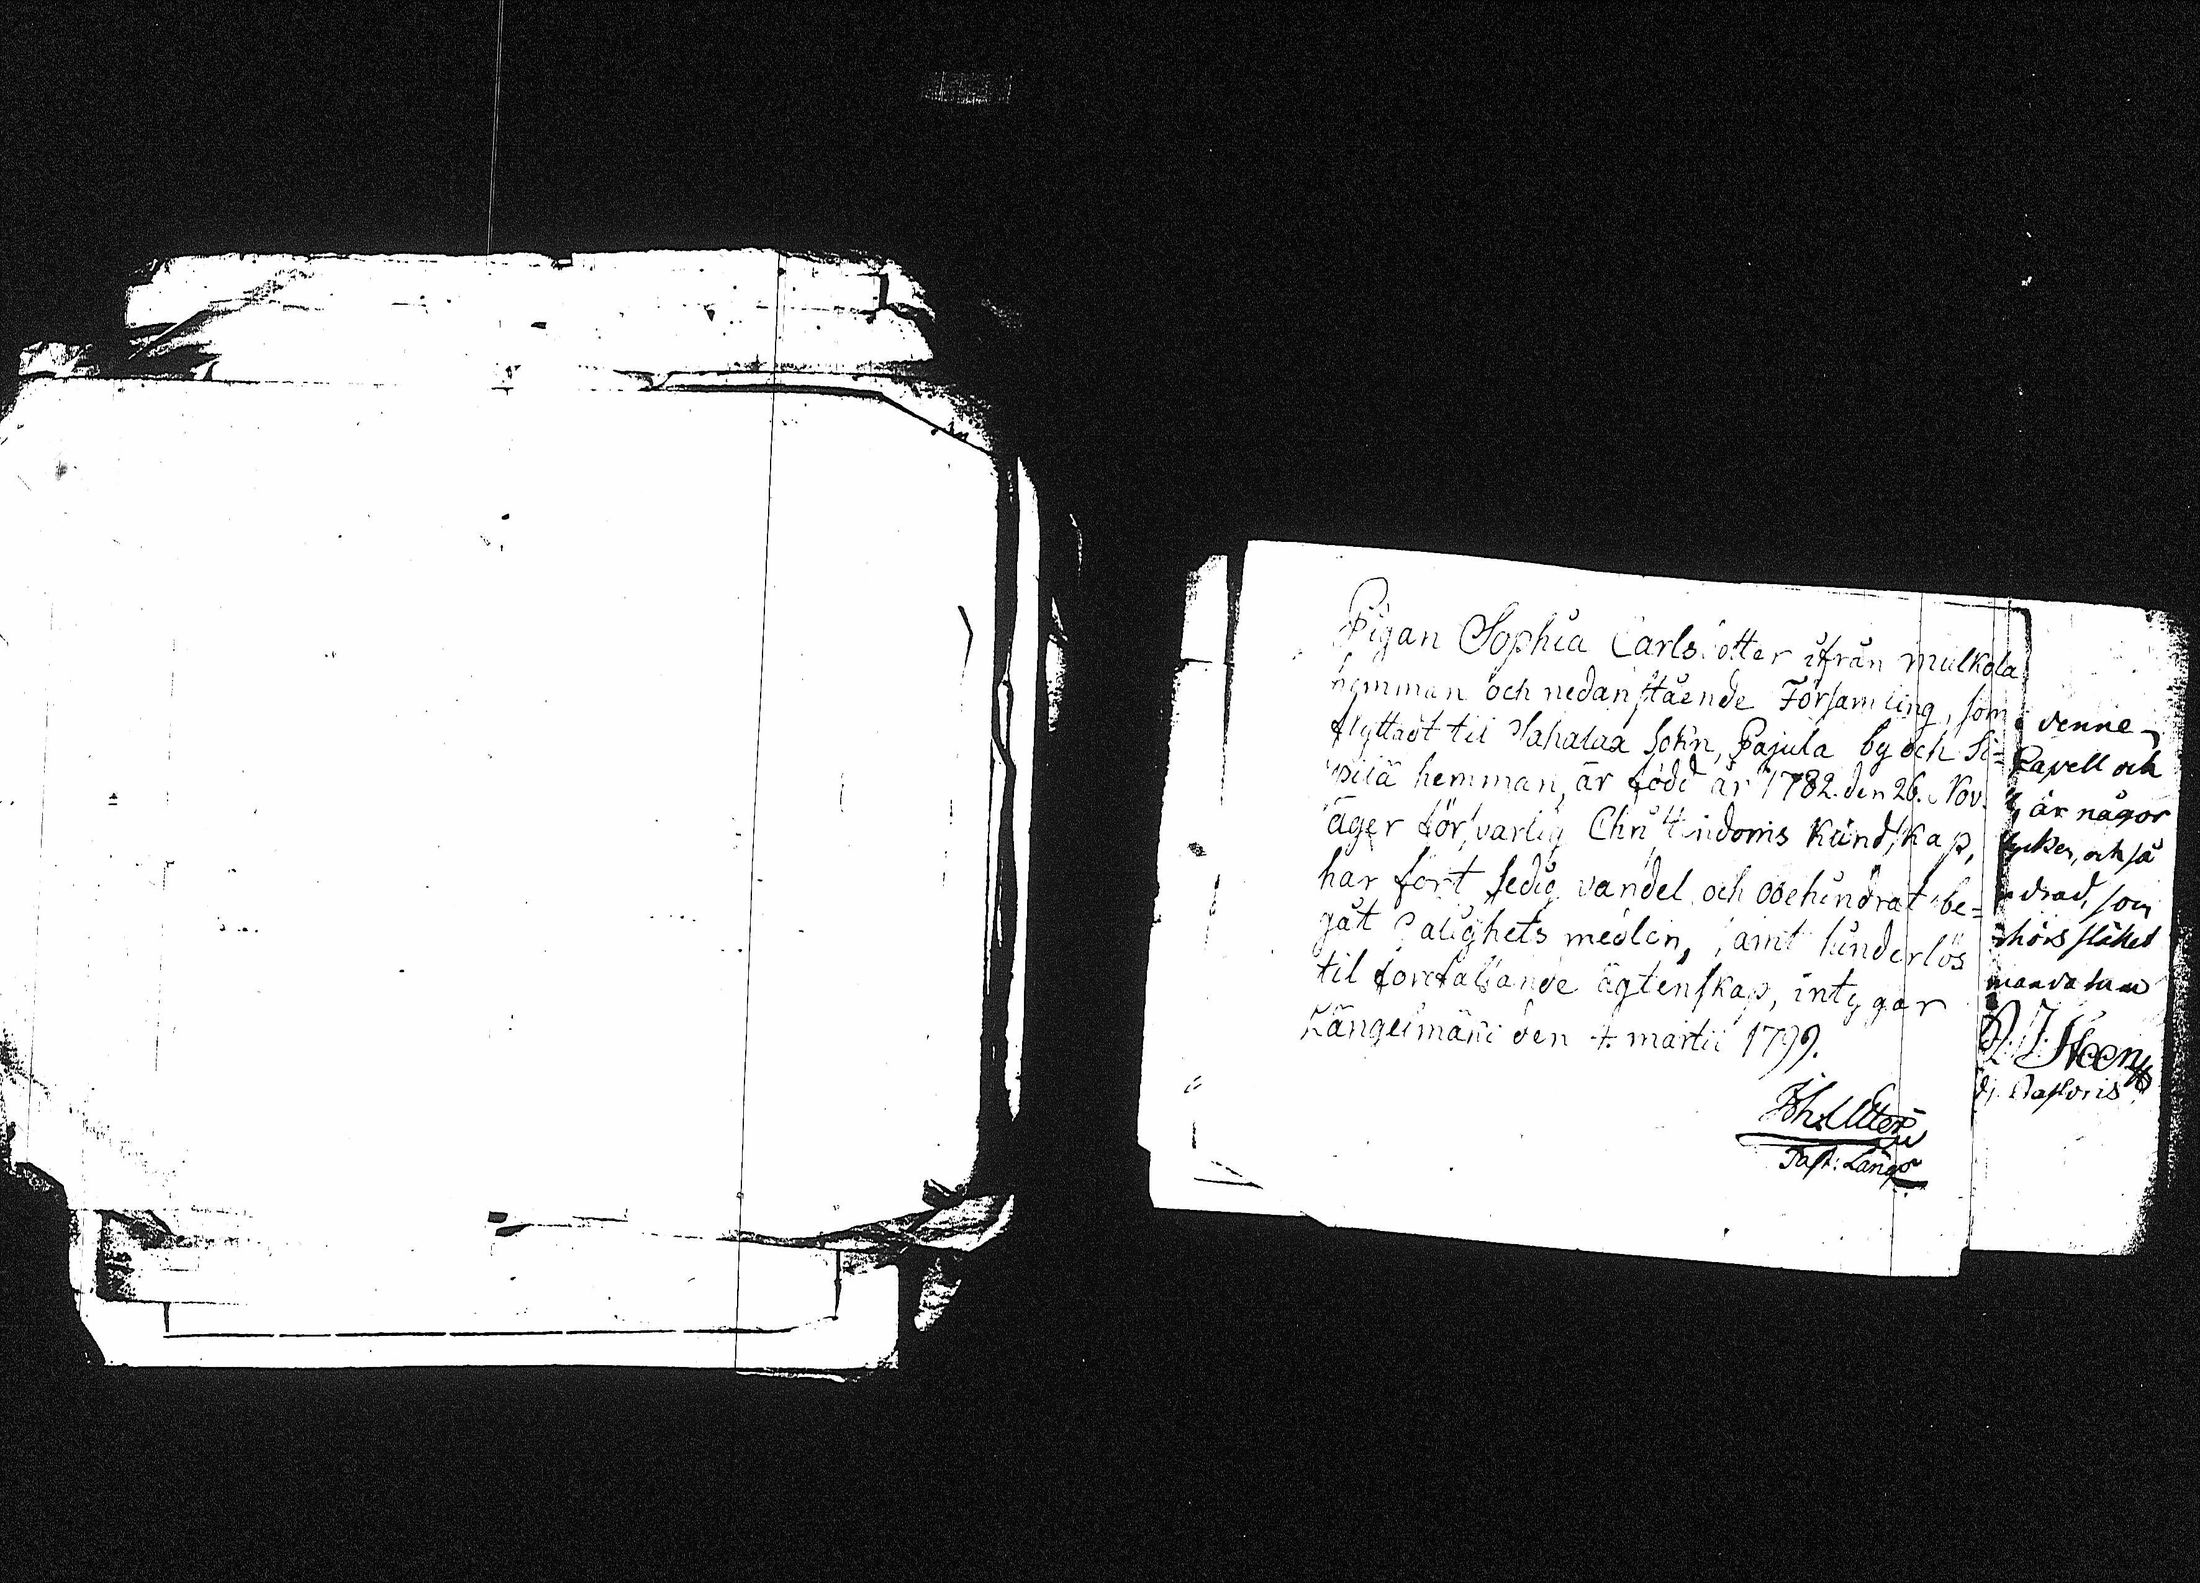 Pigan Sophia Carlsdotter ifrån Mulkola
hemman och nedanstående Församling, som
flyttadt til Sahalax Sokn, Pajula by och Si-
pilä hemman, är född år 1782 den 26. Nov.
äger försvarlig Christendoms Kundskap,
har fört sedig vandel och obehindrat be-
gåt Salighets medlen, samt hinderlös
til förefallande ägtenskap, intygar
Längelmäki den 4. martii 1799.
Joh. Utter
Past: Läng
denne
Capell och
är någor
tycker, och så
drad, som
hörs slåttet
mandatum
Dj. Pastoris